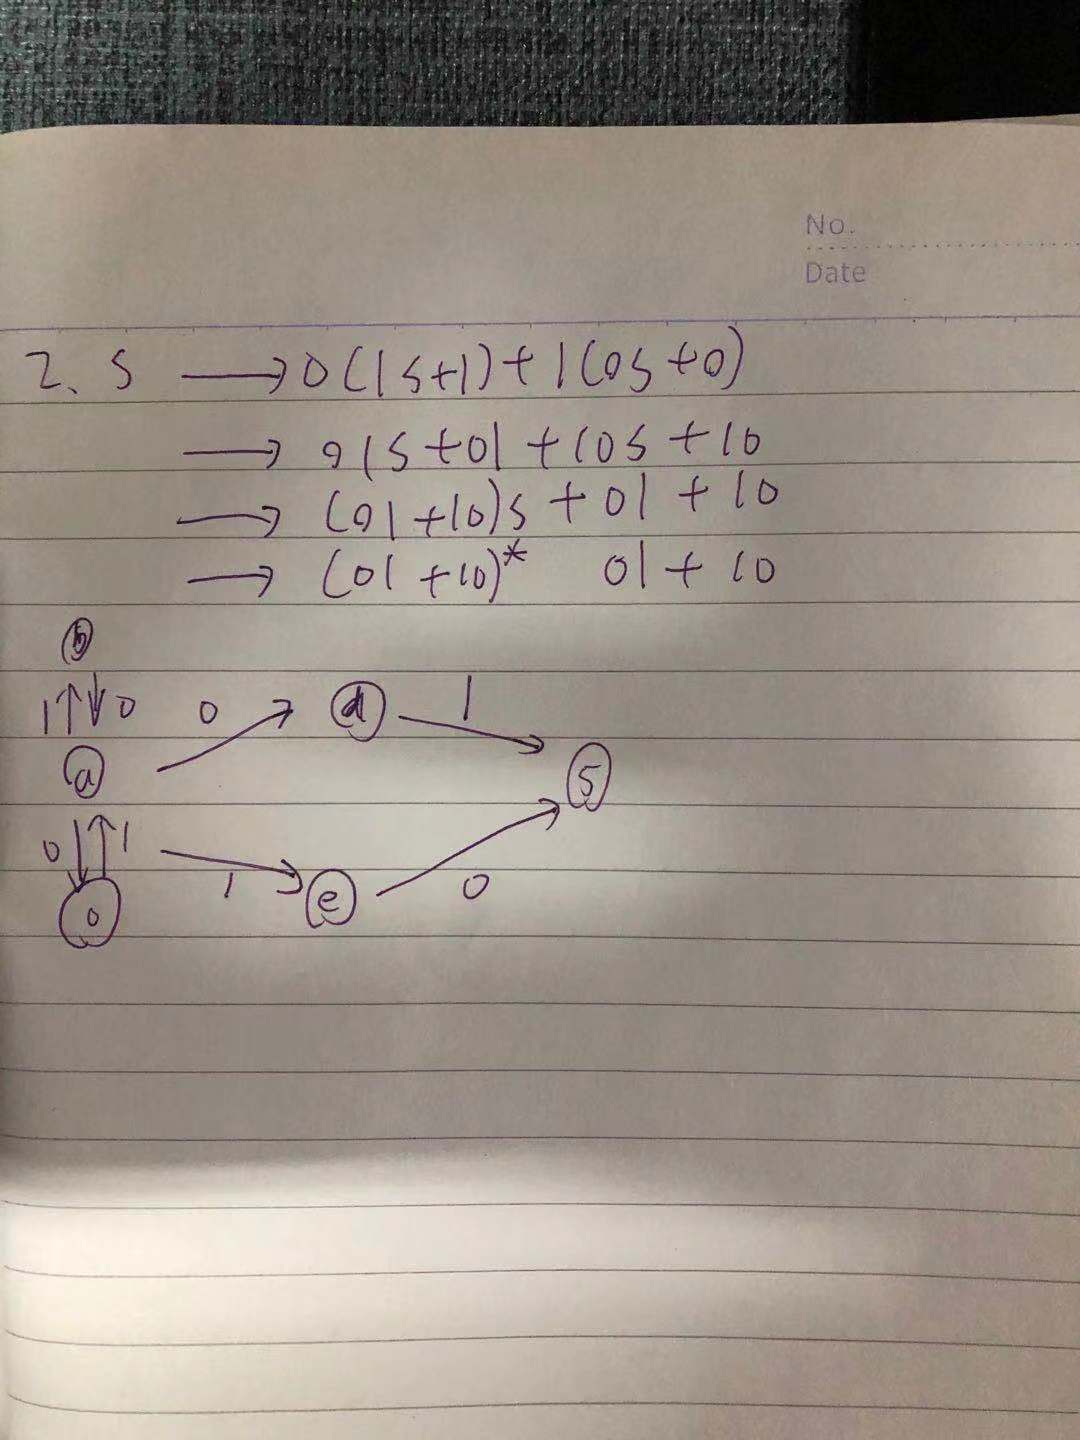 No.
Date
2. S ⟶ 0(1S+1)+1(0S+0)
⟶ 01S+01+10S+10
⟶ (01+10)S+01+10
⟶ (01+10)* 01+10
b
1 ↑ ↓ 0 0 d 1
a S
0 ↓ ↑ 1 1 e 0
0